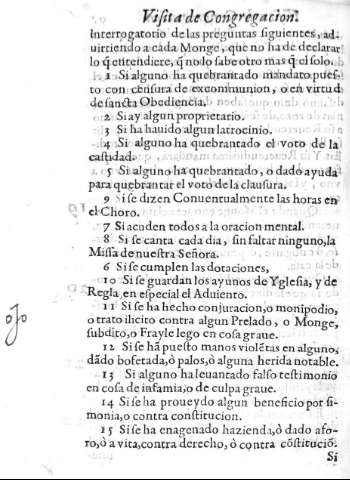 Visita de Congregacion.
interrogatorio de las preguntas siguientes, ad-
uirtiendo a cada Monge, que no ha de declarar
lo q̃ entendiere, q̃ no lo sabe otro mas q̃ el solo.
1 Si alguno ha quebrantado mandato pues-
to con censura de excomunion, o en virtud
de sancta Obediencia.
2 Si ay algun proprietario.
3 Si ha hauido algun latrocinio.
4 Si alguno ha quebrantado el voto de la
castidad.
5 Si alguno ha quebrantado, o dado ayuda
para quebrantar el voto de la clausura.
9 Si se dizen Conuentualmente las horas en
el Choro.
7 Si acuden todos a la oracion mental.
8 Si se canta cada dia, sin faltar ninguno, la
Missa de nuestra Señora.
6 Si se cumplen las dotaciones,
10 Si se guardan los ayunos de Yglesia, y de
Regla, en especial el Aduiento.
11 Si se ha hecho conjuracion, o monipodio,
o trato ilicito contra algun Prelado, o Monge,
subdito, o Frayle lego en cosa graue.
ojo
12 Si se hã puesto manos violẽtas en alguno,
dãdo bofetada, ò palos, ò alguna herida notable.
13 Si alguno ha leuantado falso testimonio
en cosa de infamia, o de culpa graue.
14 Si se ha proueydo algun beneficio por si-
monia, o contra constitucion.
15 Si se ha enagenado hazienda, ò dado afo-
ro, ò a vita, contra derecho, ò contra cõstituciõ.
Si